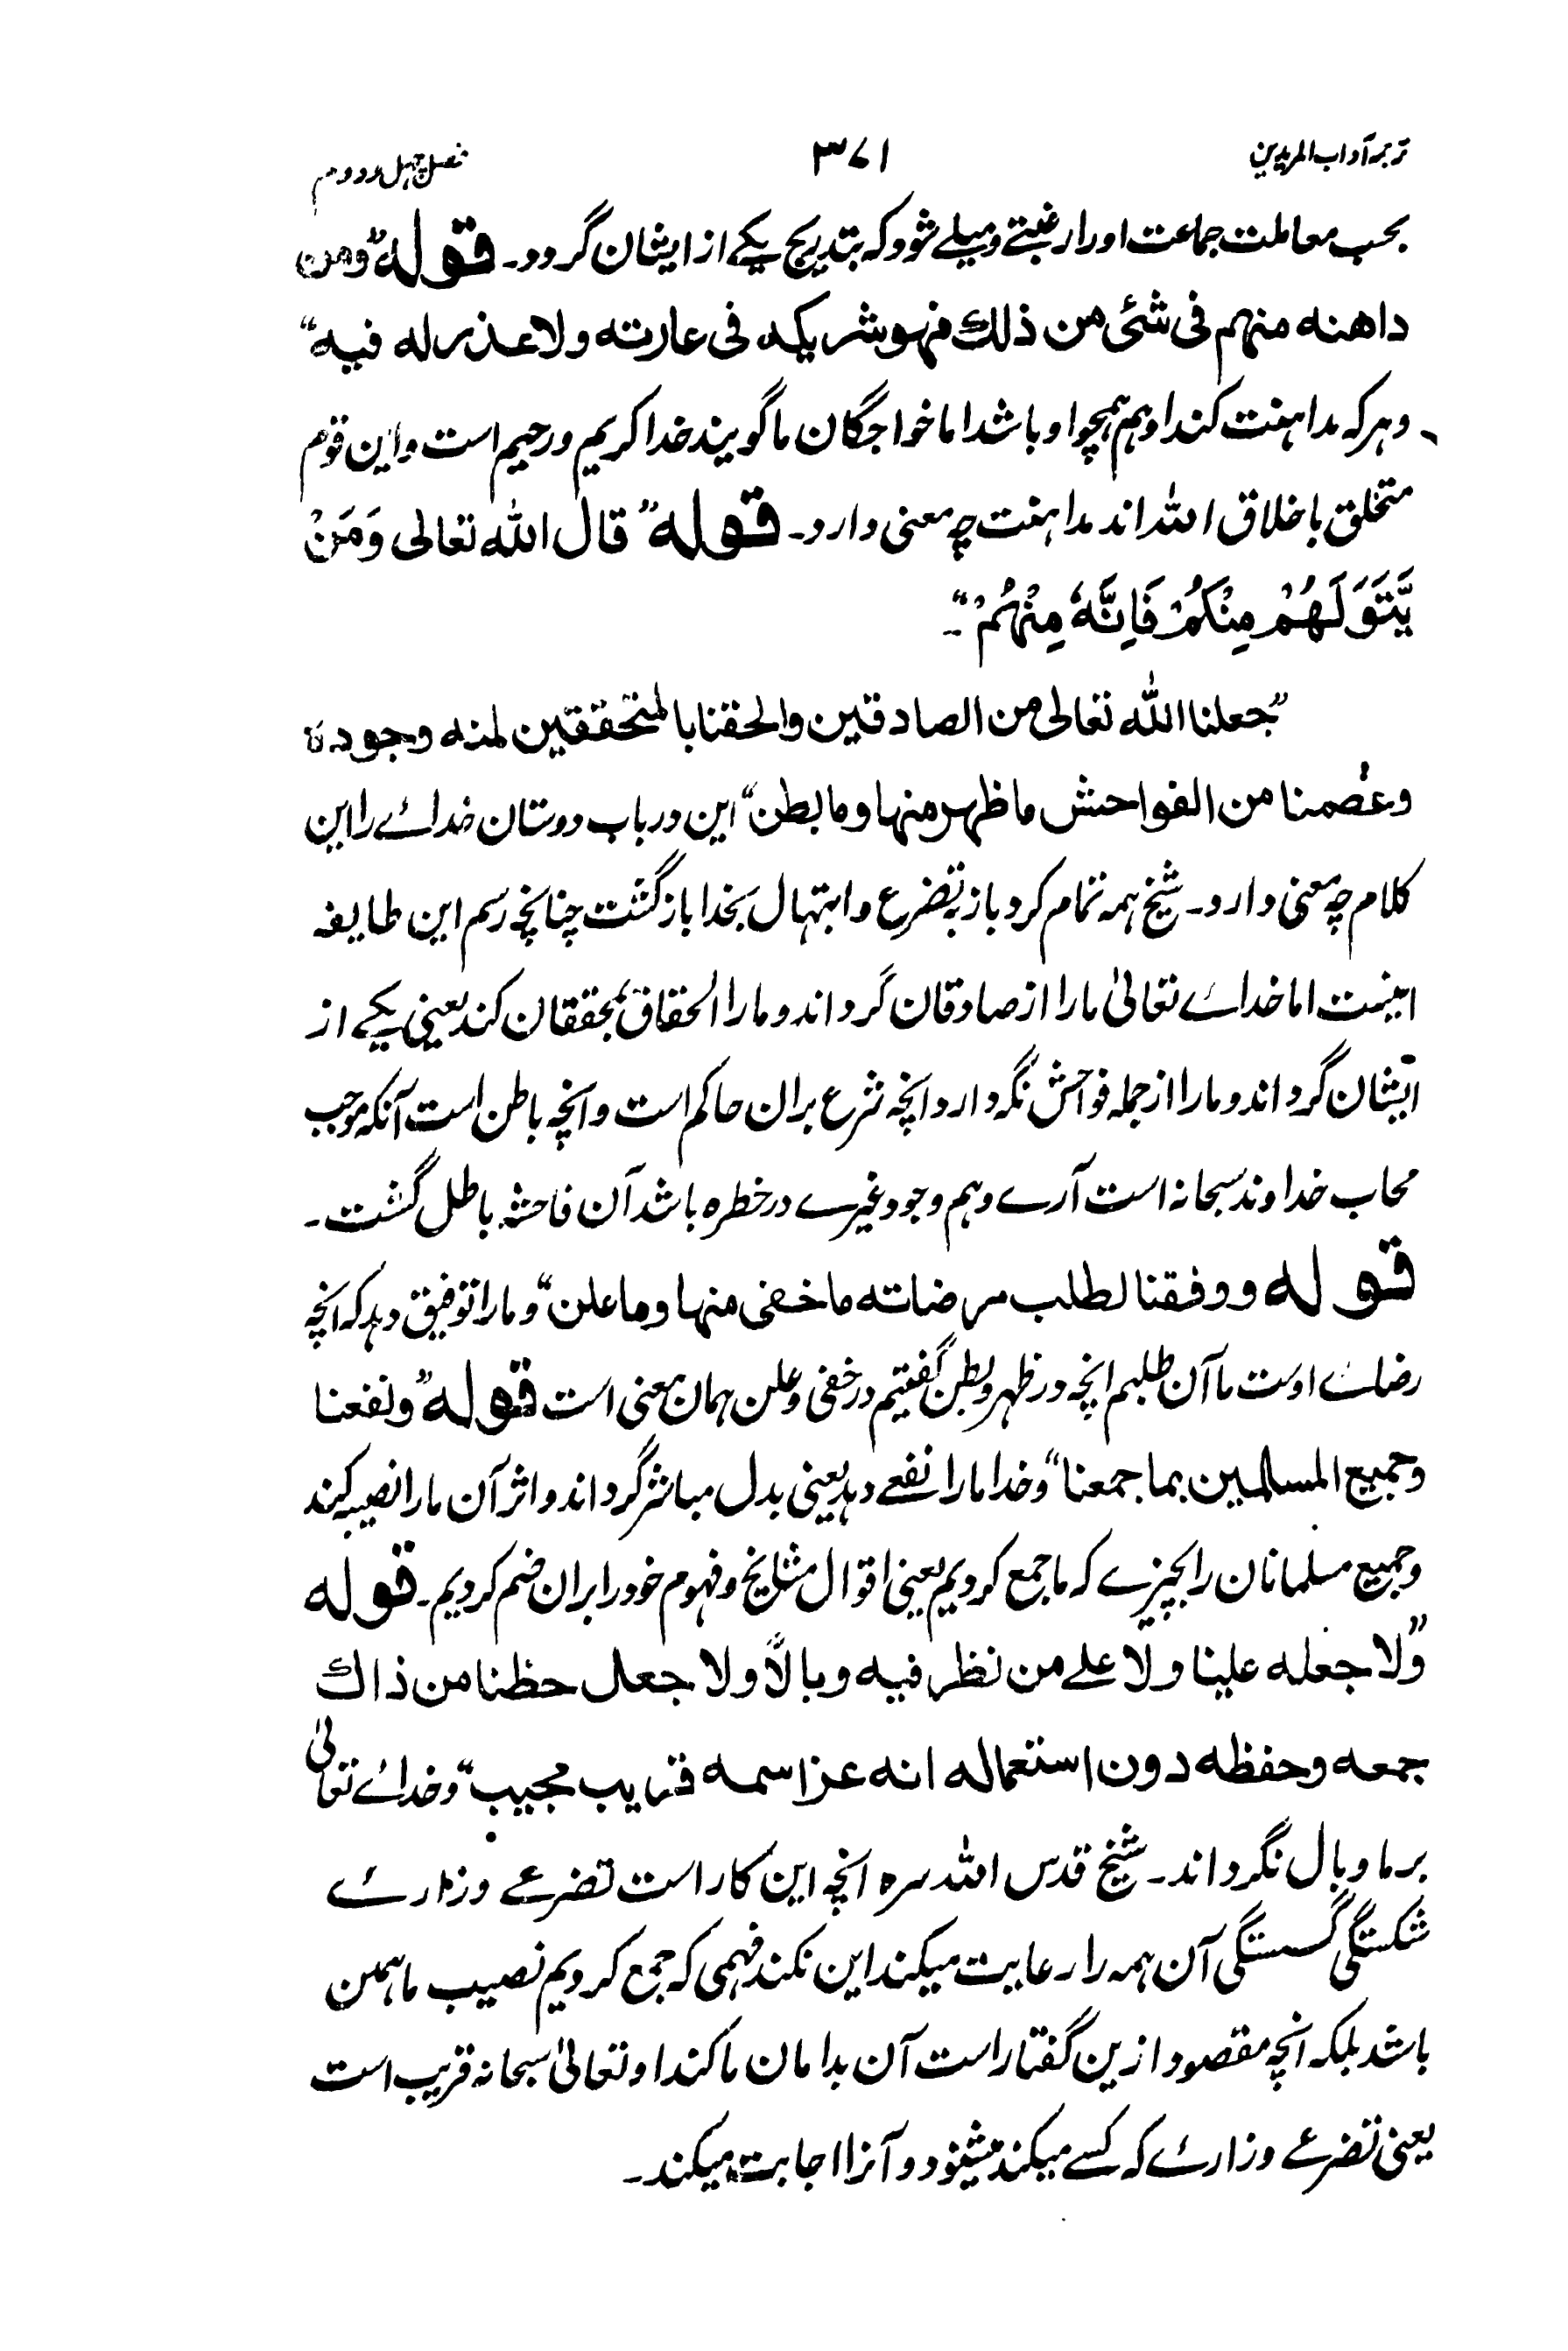 ترجمہ آداب المریدین ۳۷۱ فصل چہل و دوم
بحسب معاملت جماعت اورا رغبتے و میلے شود که بتدریج یکے از ایشان گردد۔ قوله ”ومن
داهنه منهم فی شئی من ذلك فهو شریکه فی عارته ولا عذر له فیه“
وهرکه مداهنت کند او هم همچو او باشد اما خواجگان ما گویند خدا کریم و رحیم است و این قوم
متخلق باخلاق الله اند مداهنت چه معنی دارد۔ قوله ”قال الله تعالی وَمَنْ
یَّتَوَلَّهُمْ مِنْکُمْ فَاِنَّهٗ مِنْهُمْ“۔
”جعلنا الله تعالی من الصادقین والحقنا بالمتحققین لمنه وجوده
وعصمنا من الفواحش ما ظهر منها وما بطن“ این در باب دوستان خدائے را این
کلام چه معنی دارد۔ شیخ همه تمام کرد باز به تضرع و ابتهال بخدا باز گشت چنانچه رسم این طایفه
اینست اما خدائے تعالیٰ ما را از صادقان گرداند و ما را الحقاق بمحققان کند یعنی یکے از
ایشان گرداند و ما را از جمله فواحش نگه دارد انچه شرع بران حاکم است و انچه باطن است آنکه موجب
محاب خداوند سبحانه است آرے وهم وجود غیرے در خطره باشد آن فاحشه باطل گشت۔
قوله ووفقنا لطلب مرضاته ما خفی منها وما علن“ و ما را توفیق دهد که انچه
رضائے اوست ما آن طلبیم انچه در ظهر و بطن گفتیم در خفی و علن همان معنی است قوله ”ونفعنا
وجمیع المسلمین بما جمعنا“ و خدا ما را نفعے دهد یعنی بدل مباشر گرداند و اثر آن ما را نصیبه کند
وجمیع مسلمانان را بچیزے که ما جمع کردیم یعنی اقوال مشایخ و فهوم خود را بران ضم کردیم۔ قوله
”ولا جعله علینا ولا علے من نظر فیه وبالاً ولا جعل حظنا من ذاك
جمعه وحفظه دون استعماله انه عز اسمه قریب مجیب“ و خدائے تعالیٰ
بر ما وبال نگرداند۔ شیخ قدس الله سره انچه این کار است تضرعے و زارئے
شکستگی گسستگی آن همه را رعایت میکند این نکند فهمی که جمع کردیم نصیب ما همین
باشد بلکه انچه مقصود ازین گفتار است آن بدامان ما کند او تعالیٰ سبحانه قریب است
یعنی تضرعے و زارئے که کسے میکند میشنود و آنرا اجابت میکند۔